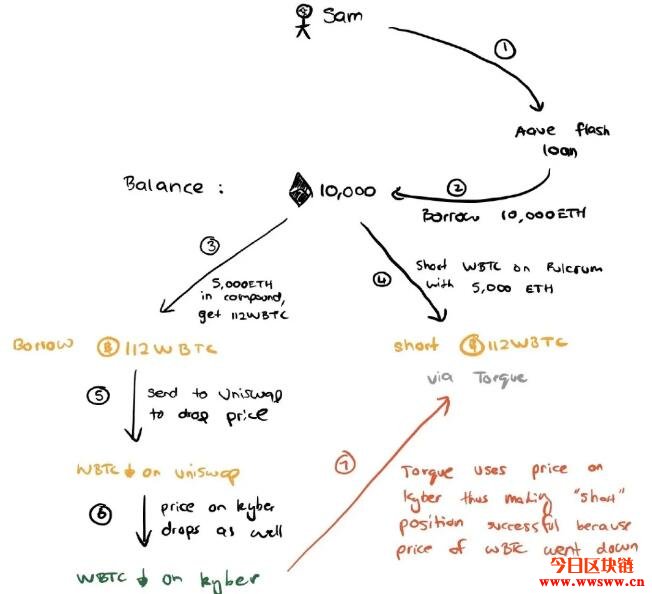 Sam
①
Aave flash
loan
Balance :
10,000
②
Borrow 10,000ETH
③
5,000ETH
in compound,
get 112WBTC
④
Short WBTC on Fulcrum
with 5,000 ETH
Borrow ₿ 112WBTC
short ₿ 112WBTC
via Torque
⑤
send to Uniswap
to drop price
WBTC ↓ on uniswap
⑥
price on kyber
drops as well
WBTC ↓ on kyber
⑦
Torque uses price on
kyber thus making "short"
position successful because
price of WBTC went down
今日区块链
www.wwsww.cn